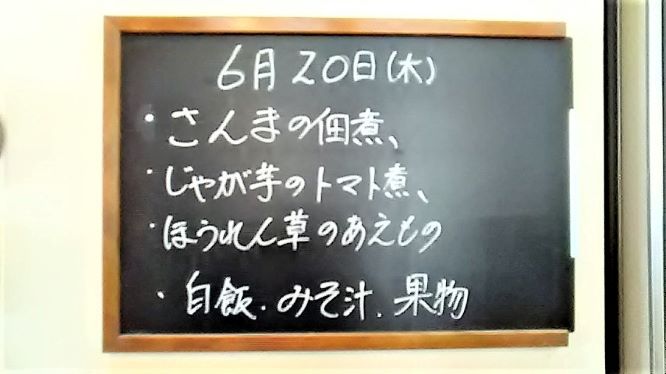 6月20日(木)
・さんまの佃煮、
・じゃが芋のトマト煮、
・ほうれん草のあえもの
・白飯.みそ汁.果物